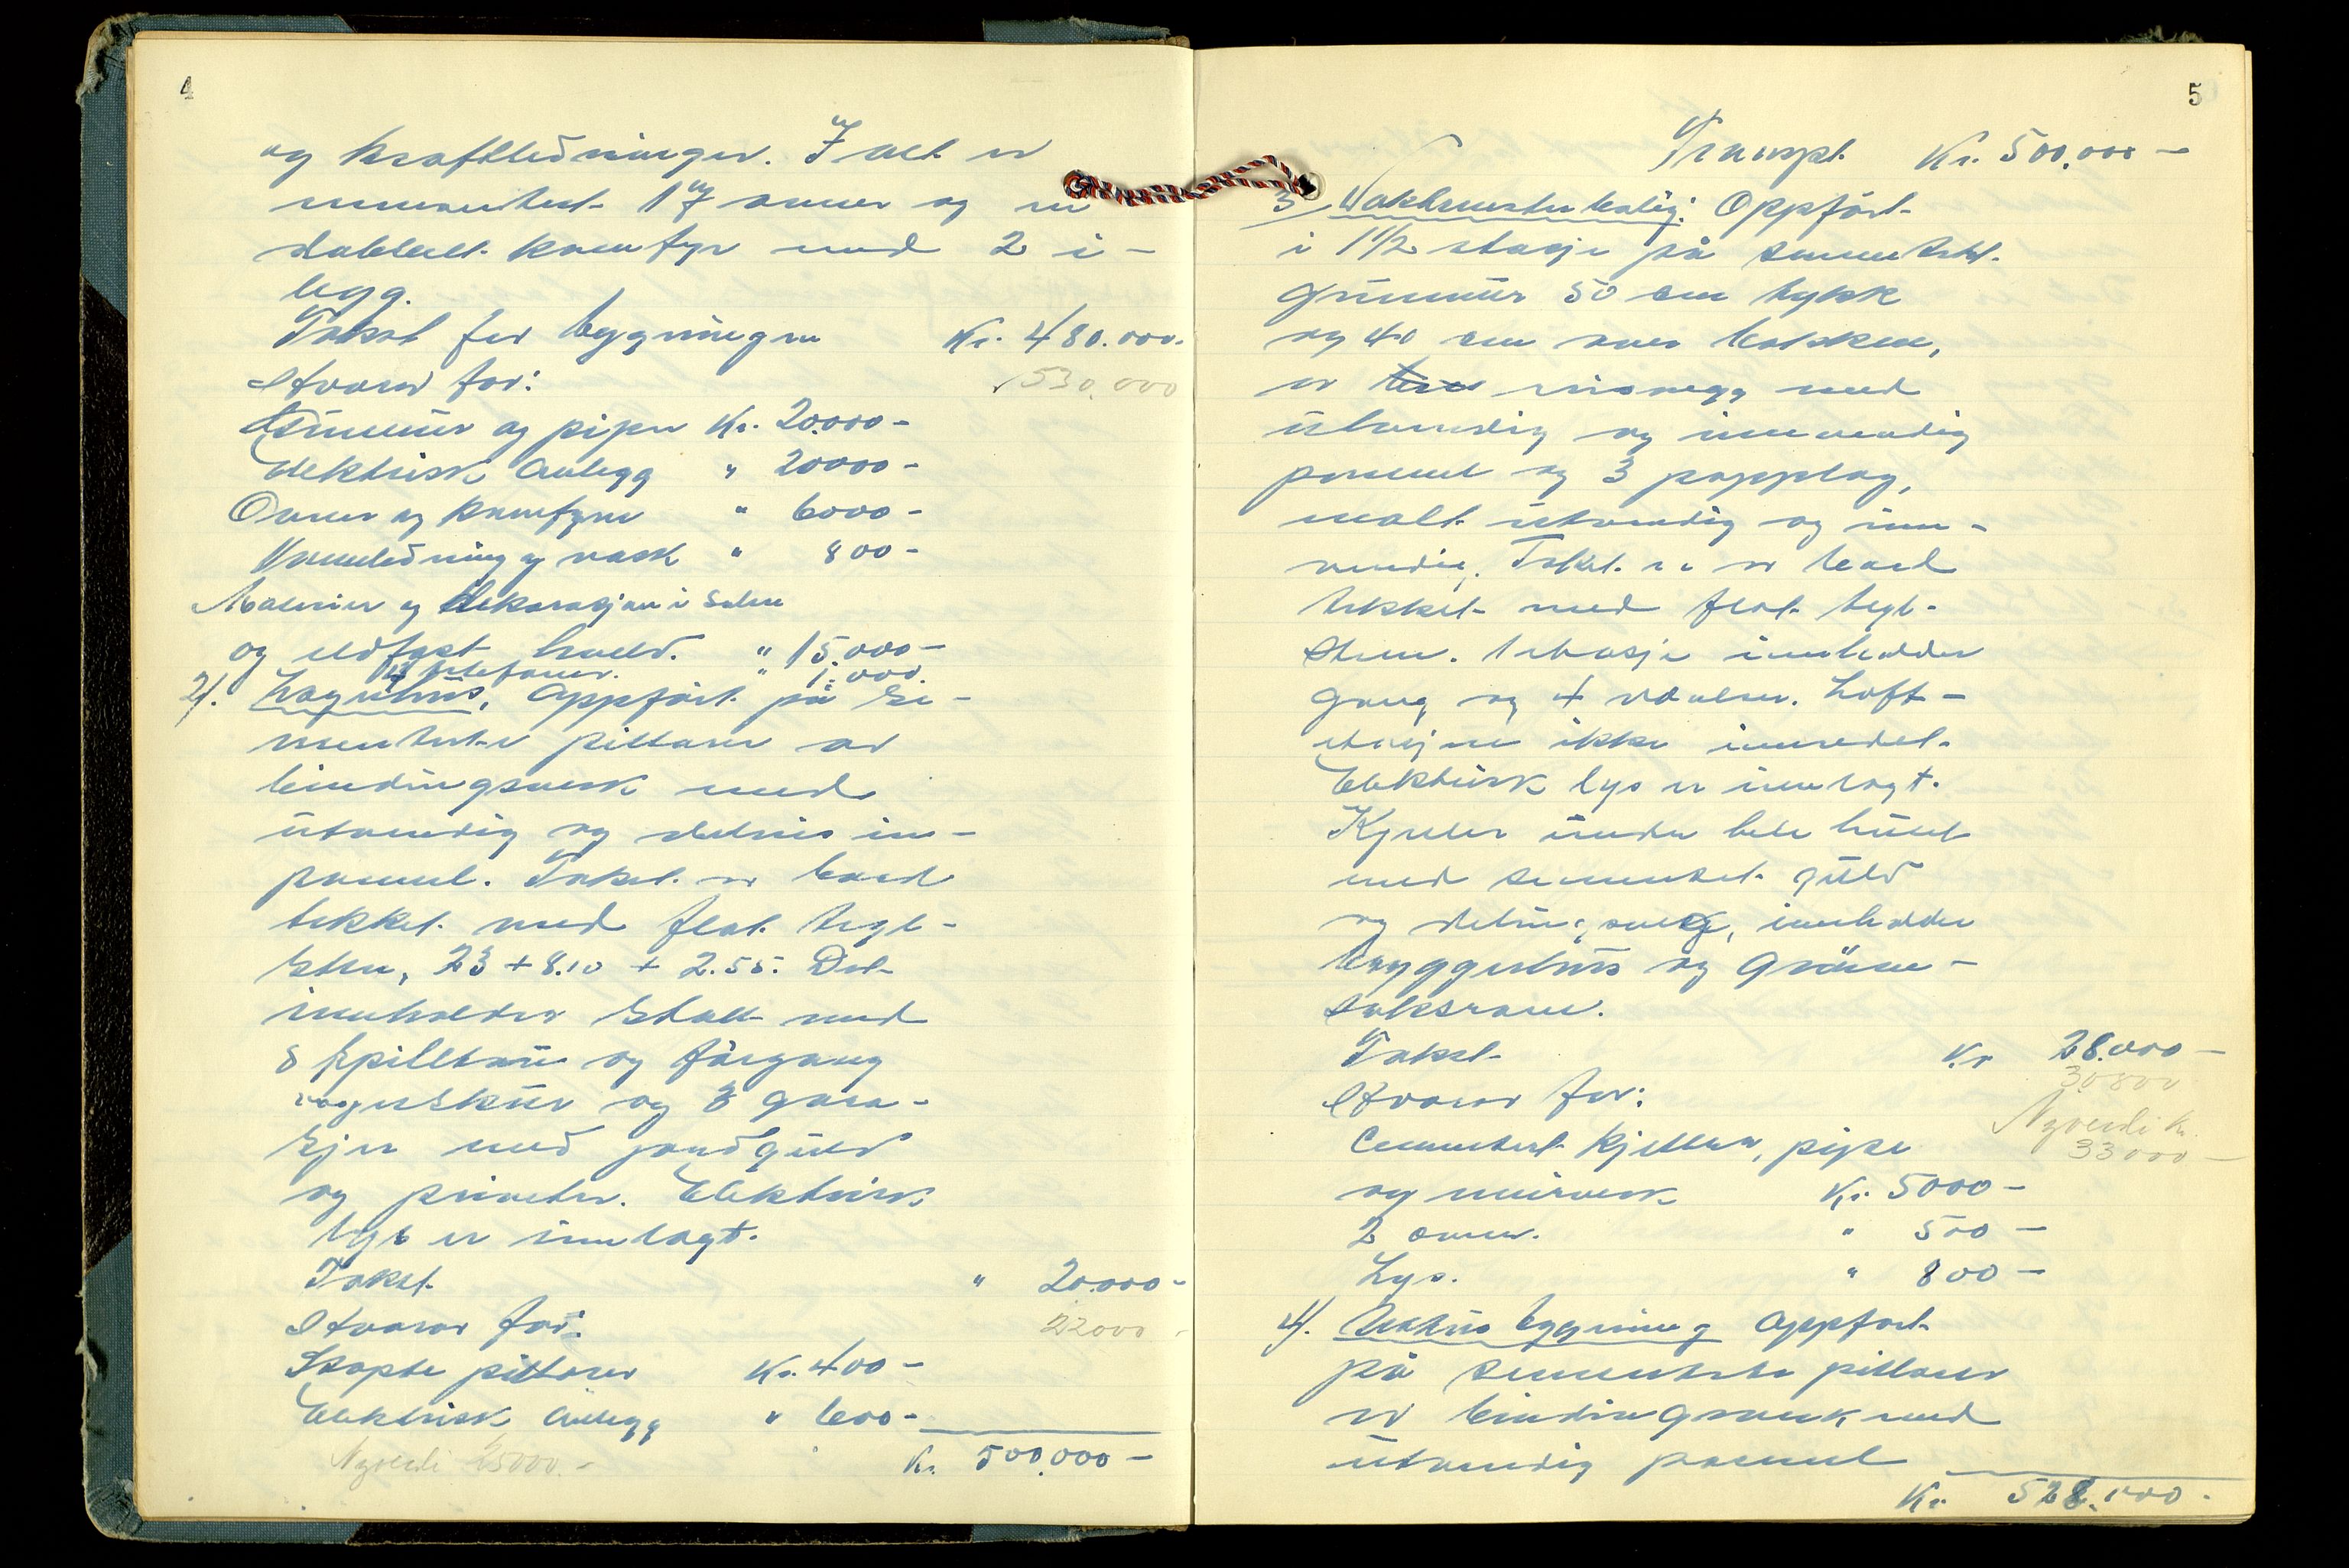 4
og kraftledninger. I alt er
innmontert 17 ovner og en
dobbelt komfyr med 2 i-
legg.
Takst for bygningen Kr. 480.000.
Avarar for: 530.000
Grunnmur og piper Kr. 20.000-
Elektrisk anlegg " 20000-
Ovner og komfyrer " 6000-
Vannledning og vask " 800-
Malerier og dekorasjon i salen
og ildfast hvelv. " 15.000-
telefoner. " 1.000.
2/. Uthus, Oppført på se-
menterte pillarer av
bindingsverk med
utvendig og delvis in-
panel. Taket er bord
tekket med flat tegl-
sten, 23 + 8.10 + 2.55. Det
inneholder stall med
8 spilltau og fôrgang
vognskur og 3 gara-
sjer med jordgulv
og priveter. Elektrisk
lys er innlagt.
Takst " 20.000-
Avarar for: 22000
Støpte pillarer Kr. 400-
Elektrisk anlegg " 600-
Nyverdi 25000.- Kr. 500.000-
5
Transpt. Kr. 500.000-
3/ Vaktmesterbolig: Oppført
i 1 1/2 etasje på sementert
grunnmur 50 cm tykk
og 40 cm over bakken,
er reisvegg med
utvendig og innvendig
panel og 3 papplag,
malt utvendig og inn-
vendig. Taket er bord
tekket med flat tegl-
sten. 1 etasje inneholder
gang og 4 værelser. Loft-
etasjen ikke innredet.
Elektrisk lys er innlagt.
Kjeller under hele huset
med sementert gulv
og delingsvegg, inneholder
bryggerhus og grøn-
saksrom.
Takst Kr 28.000-
30800
Avarar for:
Nyverdi kr.
33000-
Cementert kjeller, pipe
og murverk Kr. 5000-
2 ovner. " 500-
Lys. " 800-
4/. Uthusbygning Oppført
på sementerte pillarer
av bindingsverk med
utvendig panel
Kr. 528.000.